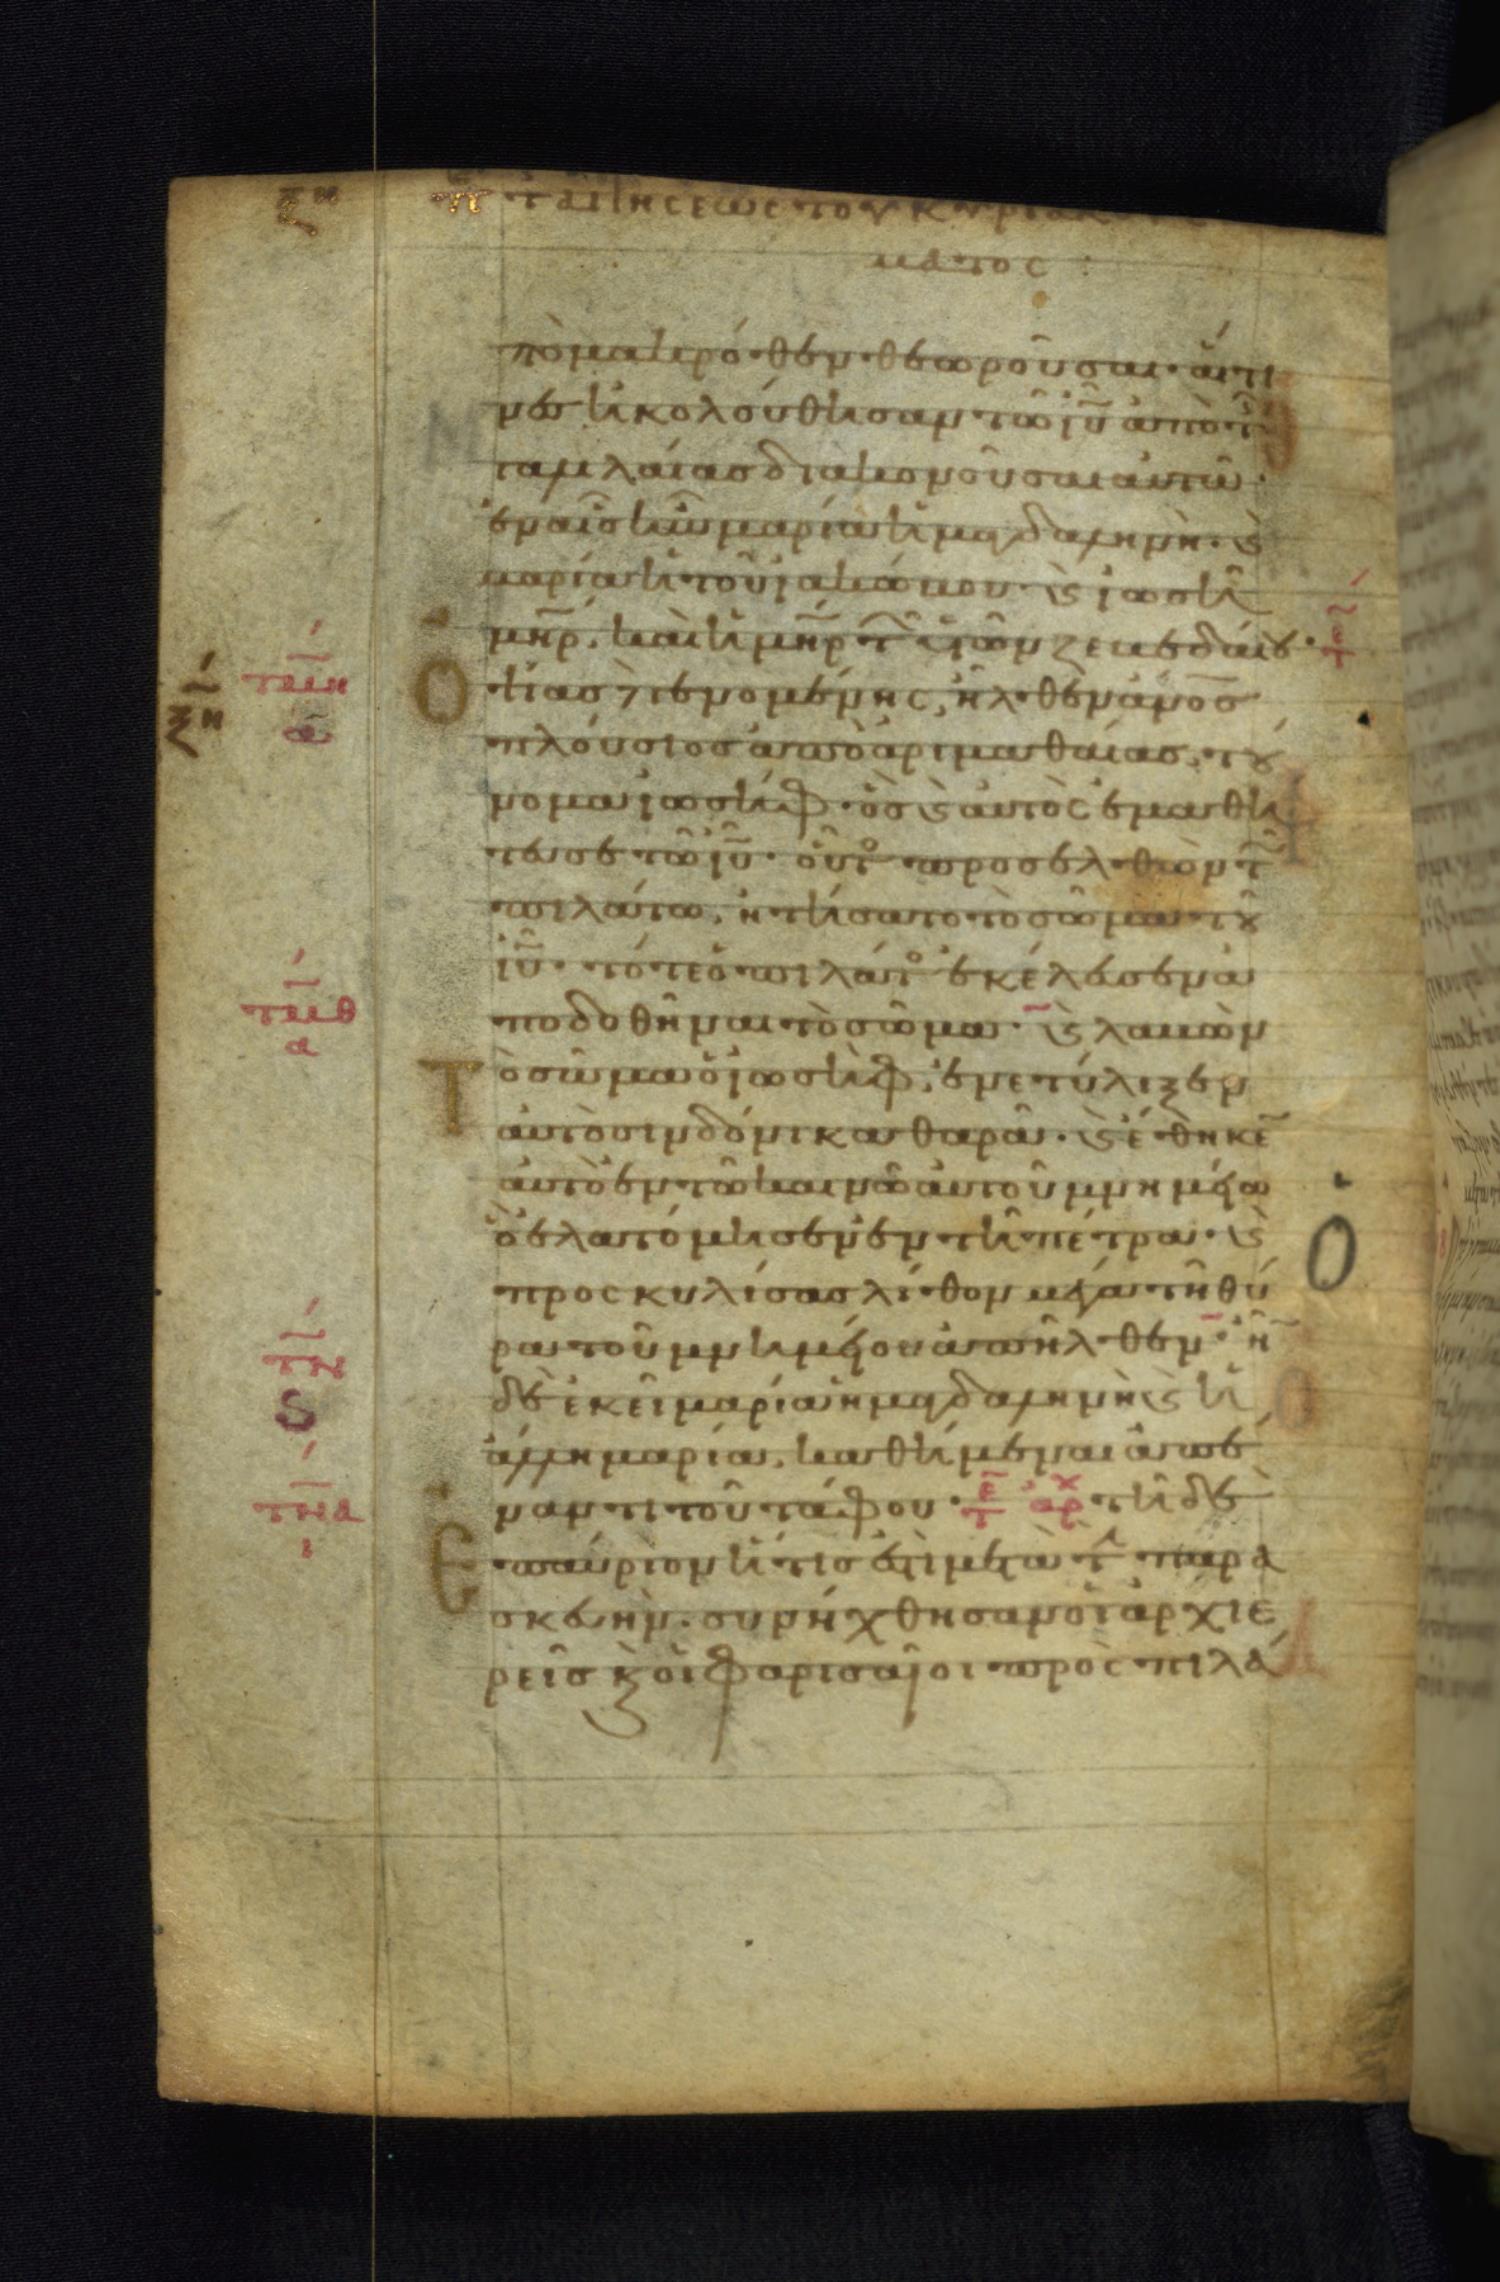 ξη π τ αιτησεως του κυριακ
ματος
πὸ μακρό θεν θεωροῦσαι· αἵτι
νες ἠκολούθησαν τῶ ἰῦ ἀπὸ τ
γαλιλαίας διακονοῦσαι αὐτῶ·
ἐν αἷς ἦν μαρία ἡ μαγδαληνὴ· ϗ
μαρία ἡ τοῦ ἰακώβου ϗ ἰωσῆ
μη̅ρ, καὶ ἡ μη̅ρ τ υἱῶν ζεβεδαίου·
Ὀψίας γενομένης, ἦλθεν ἀν̅ο̅ς
πλούσιος ἀπὸ ἀριμαθαίας, τοὔ
νομα ἰωσήφ· ὃς ϗ αὐτὸς ἐμαθή
τευσε τῶ ἰῦ· οὗτο προσελθὼν τ
πιλάτω, ἠτήσατο τὸ σῶμα τοῦ
ἰῦ· τότε ὁ πιλάτο ἐκέλευσεν ἀ
ποδοθῆναι τὸ σῶμα· ϗ λαβὼν
τὸ σῶμα ὁ ἰωσὴφ, ἐνετύλιξεν
αὐτὸ σινδόνι καθαρᾶ· ϗ ἔθηκε̅
αὐτὸ ἐν τῶ καινῶ αὐτοῦ μνημείω
ὃ ἐλατόμησεν ἐν τῆ πέτρα· ϗ
προσκυλίσας λίθον μέγα τῆ θύ
ρα τοῦ μνημείου ἀπῆλθεν· ἦ̅
δὲ ἐκεῖ μαρία ἡ μαγδαληνὴ ϗ ἡ
ἄλλη μαρία, καθήμεναι ἀπέ
ναντι τοῦ τάφου· τε̅ ἀρχ τῆ δὲ
Ἐπαύριον ἥτις ἐστὶ μετὰ τ παρα
σκευὴν· συνήχθησαν οἱ ἀρχιε
ρεῖς κ οἱ φαρισαῖοι πρὸς πιλᾶ
ξη
τμη
τμθ
α
τν
ϛ
τνα
ι
τε̅